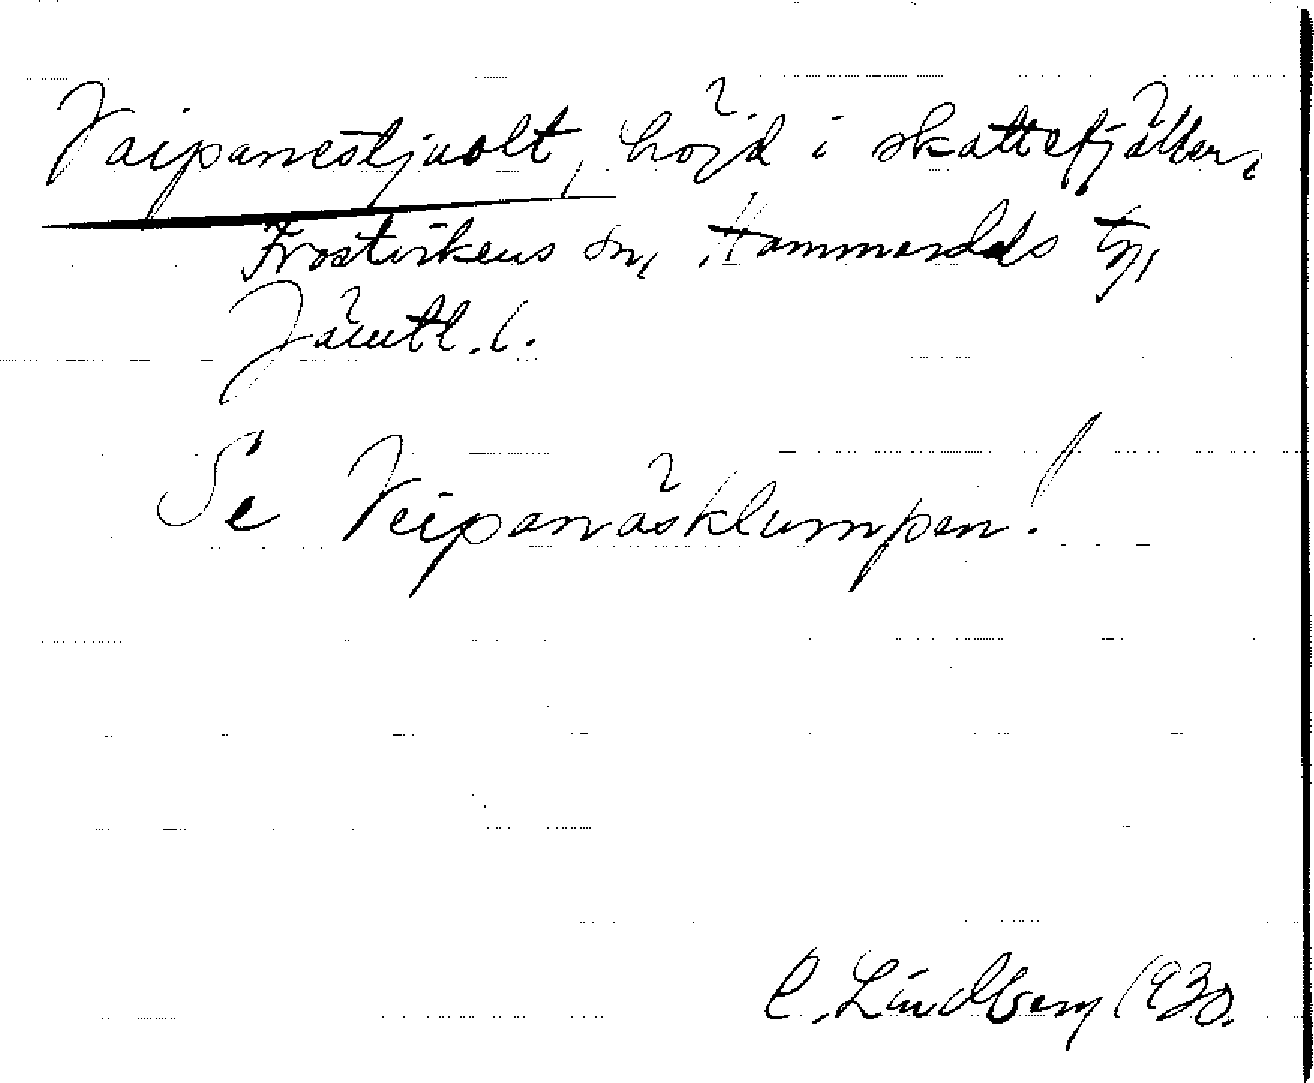 Vaipanestjuolt, höjd i skattefjällen,
Frostvikens sn, Hammerdals tg,
Jämtl. l.
Se Veipanäsklumpen!
C. Lindberg 1930.